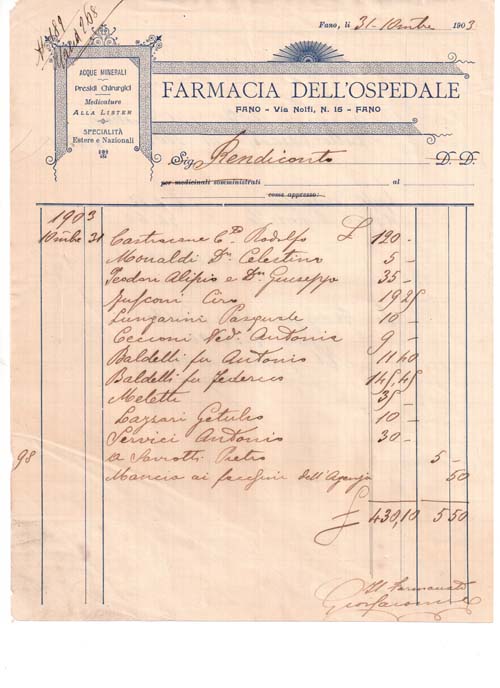 Fano, li 31 - 10mbre 1903
ACQUE MINERALI
Presidi Chirurgici
Medicature
ALLA LISTER
SPECIALITÀ
Estere e Nazionali
FARMACIA DELL'OSPEDALE
FANO - Via Nolfi, N. 15 - FANO
Sig. Rendiconto D. D.
per medicinali somministrati al
come appresso:
1903
10mbre 31 Castracane C.te Rodolfo £ 120 -
Monaldi D.r Celestino 5 -
Teodori Alipio e D.r Giuseppe 35 -
Ciro 19 25
Lungarini Pasquale 10 -
Cecconi Ved. Antonia 9 -
Baldelli fu Antonio 11 40
Baldelli fu Federico 145,45
Meletti 35 -
Lazzari Getulio 10 -
Servici Antonio 30 -
98 a Savrotti Pietro 5 -
Mancia ai facchini dell'Agenzia 50
£ 430,10 5 50
Il Farmacista